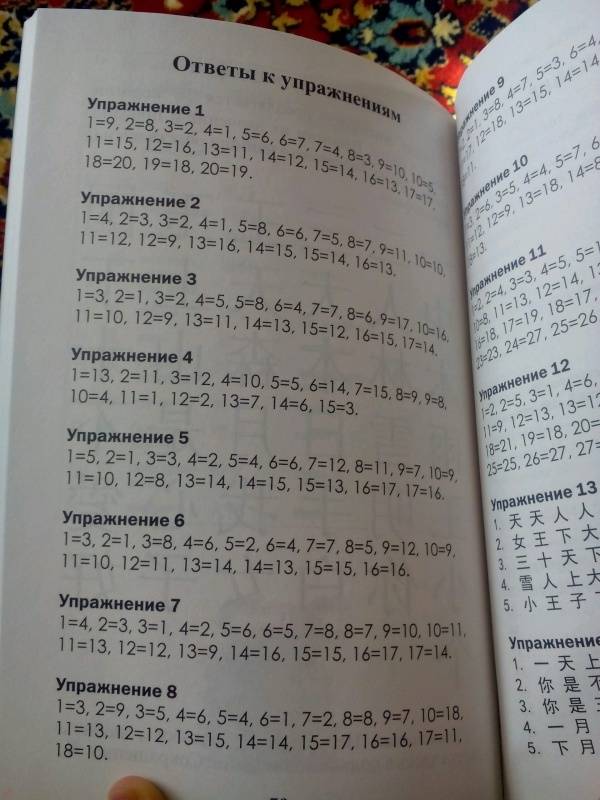 Ответы к упражнениям
Упражнение 1
1=9, 2=8, 3=2, 4=1, 5=6, 6=7, 7=4, 8=3, 9=10, 10=5,
11=15, 12=16, 13=11, 14=12, 15=14, 16=13, 17=17,
18=20, 19=18, 20=19.
Упражнение 2
1=4, 2=3, 3=2, 4=1, 5=8, 6=6, 7=5, 8=7, 9=11, 10=10,
11=12, 12=9, 13=16, 14=15, 15=14, 16=13.
Упражнение 3
1=3, 2=1, 3=2, 4=5, 5=8, 6=4, 7=7, 8=6, 9=17, 10=16,
11=10, 12=9, 13=11, 14=13, 15=12, 16=15, 17=14.
Упражнение 4
1=13, 2=11, 3=12, 4=10, 5=5, 6=14, 7=15, 8=9, 9=8,
10=4, 11=1, 12=2, 13=7, 14=6, 15=3.
Упражнение 5
1=5, 2=1, 3=3, 4=2, 5=4, 6=6, 7=12, 8=11, 9=7, 10=9,
11=10, 12=8, 13=14, 14=15, 15=13, 16=17, 17=16.
Упражнение 6
1=3, 2=1, 3=8, 4=6, 5=2, 6=4, 7=7, 8=5, 9=12, 10=9,
11=10, 12=11, 13=14, 14=13, 15=15, 16=16.
Упражнение 7
1=4, 2=3, 3=1, 4=2, 5=6, 6=5, 7=8, 8=7, 9=10, 10=11,
11=13, 12=12, 13=9, 14=16, 15=15, 16=17, 17=14.
Упражнение 8
1=3, 2=9, 3=5, 4=6, 5=4, 6=1, 7=2, 8=8, 9=7, 10=18,
11=13, 12=12, 13=15, 14=14, 15=17, 16=16, 17=11,
18=10.
Упражнение 9
2=1, 3=8, 4=7, 5=3, 6=4,
12=18, 13=15, 14=14
=11.
Упражнение 10
2=6, 3=5, 4=4, 5=7,
=12, 12=9, 13=18, 14=8
=13.
Упражнение 11
2=4, 3=3, 4=5, 5=1
10=8, 11=13, 12=14,
16=18, 17=19, 18=17,
23=23, 24=27, 25=26
Упражнение 12
1=2, 2=5, 3=1, 4=6,
11=9, 12=13, 13=12
18=21, 19=18, 20=
25=25, 26=27, 27=
Упражнение 13
1. 天 天 人 人
2. 女 王 下 大
3. 三 十 天 下
4. 雪 人 上 大
5. 小 王 子
Упражнение
1. 一 天 上
2. 你 是 不
3. 你 是
4. 一 月
5. 下 月